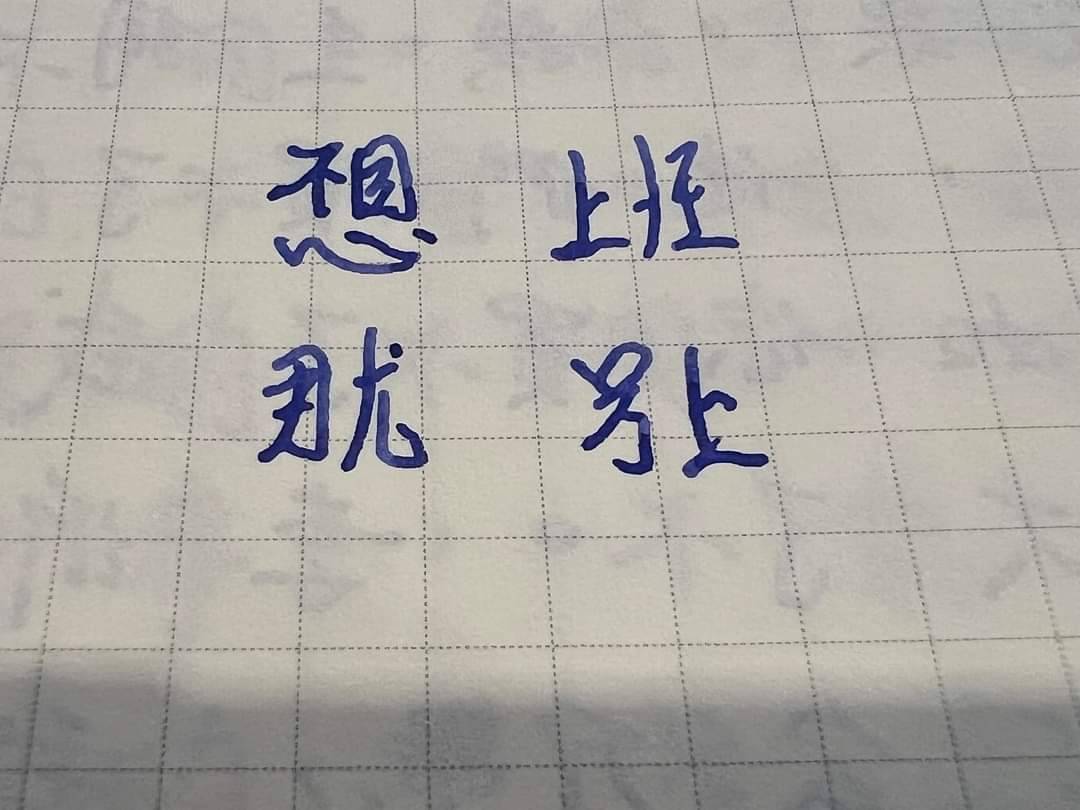 想 上班
就 别上